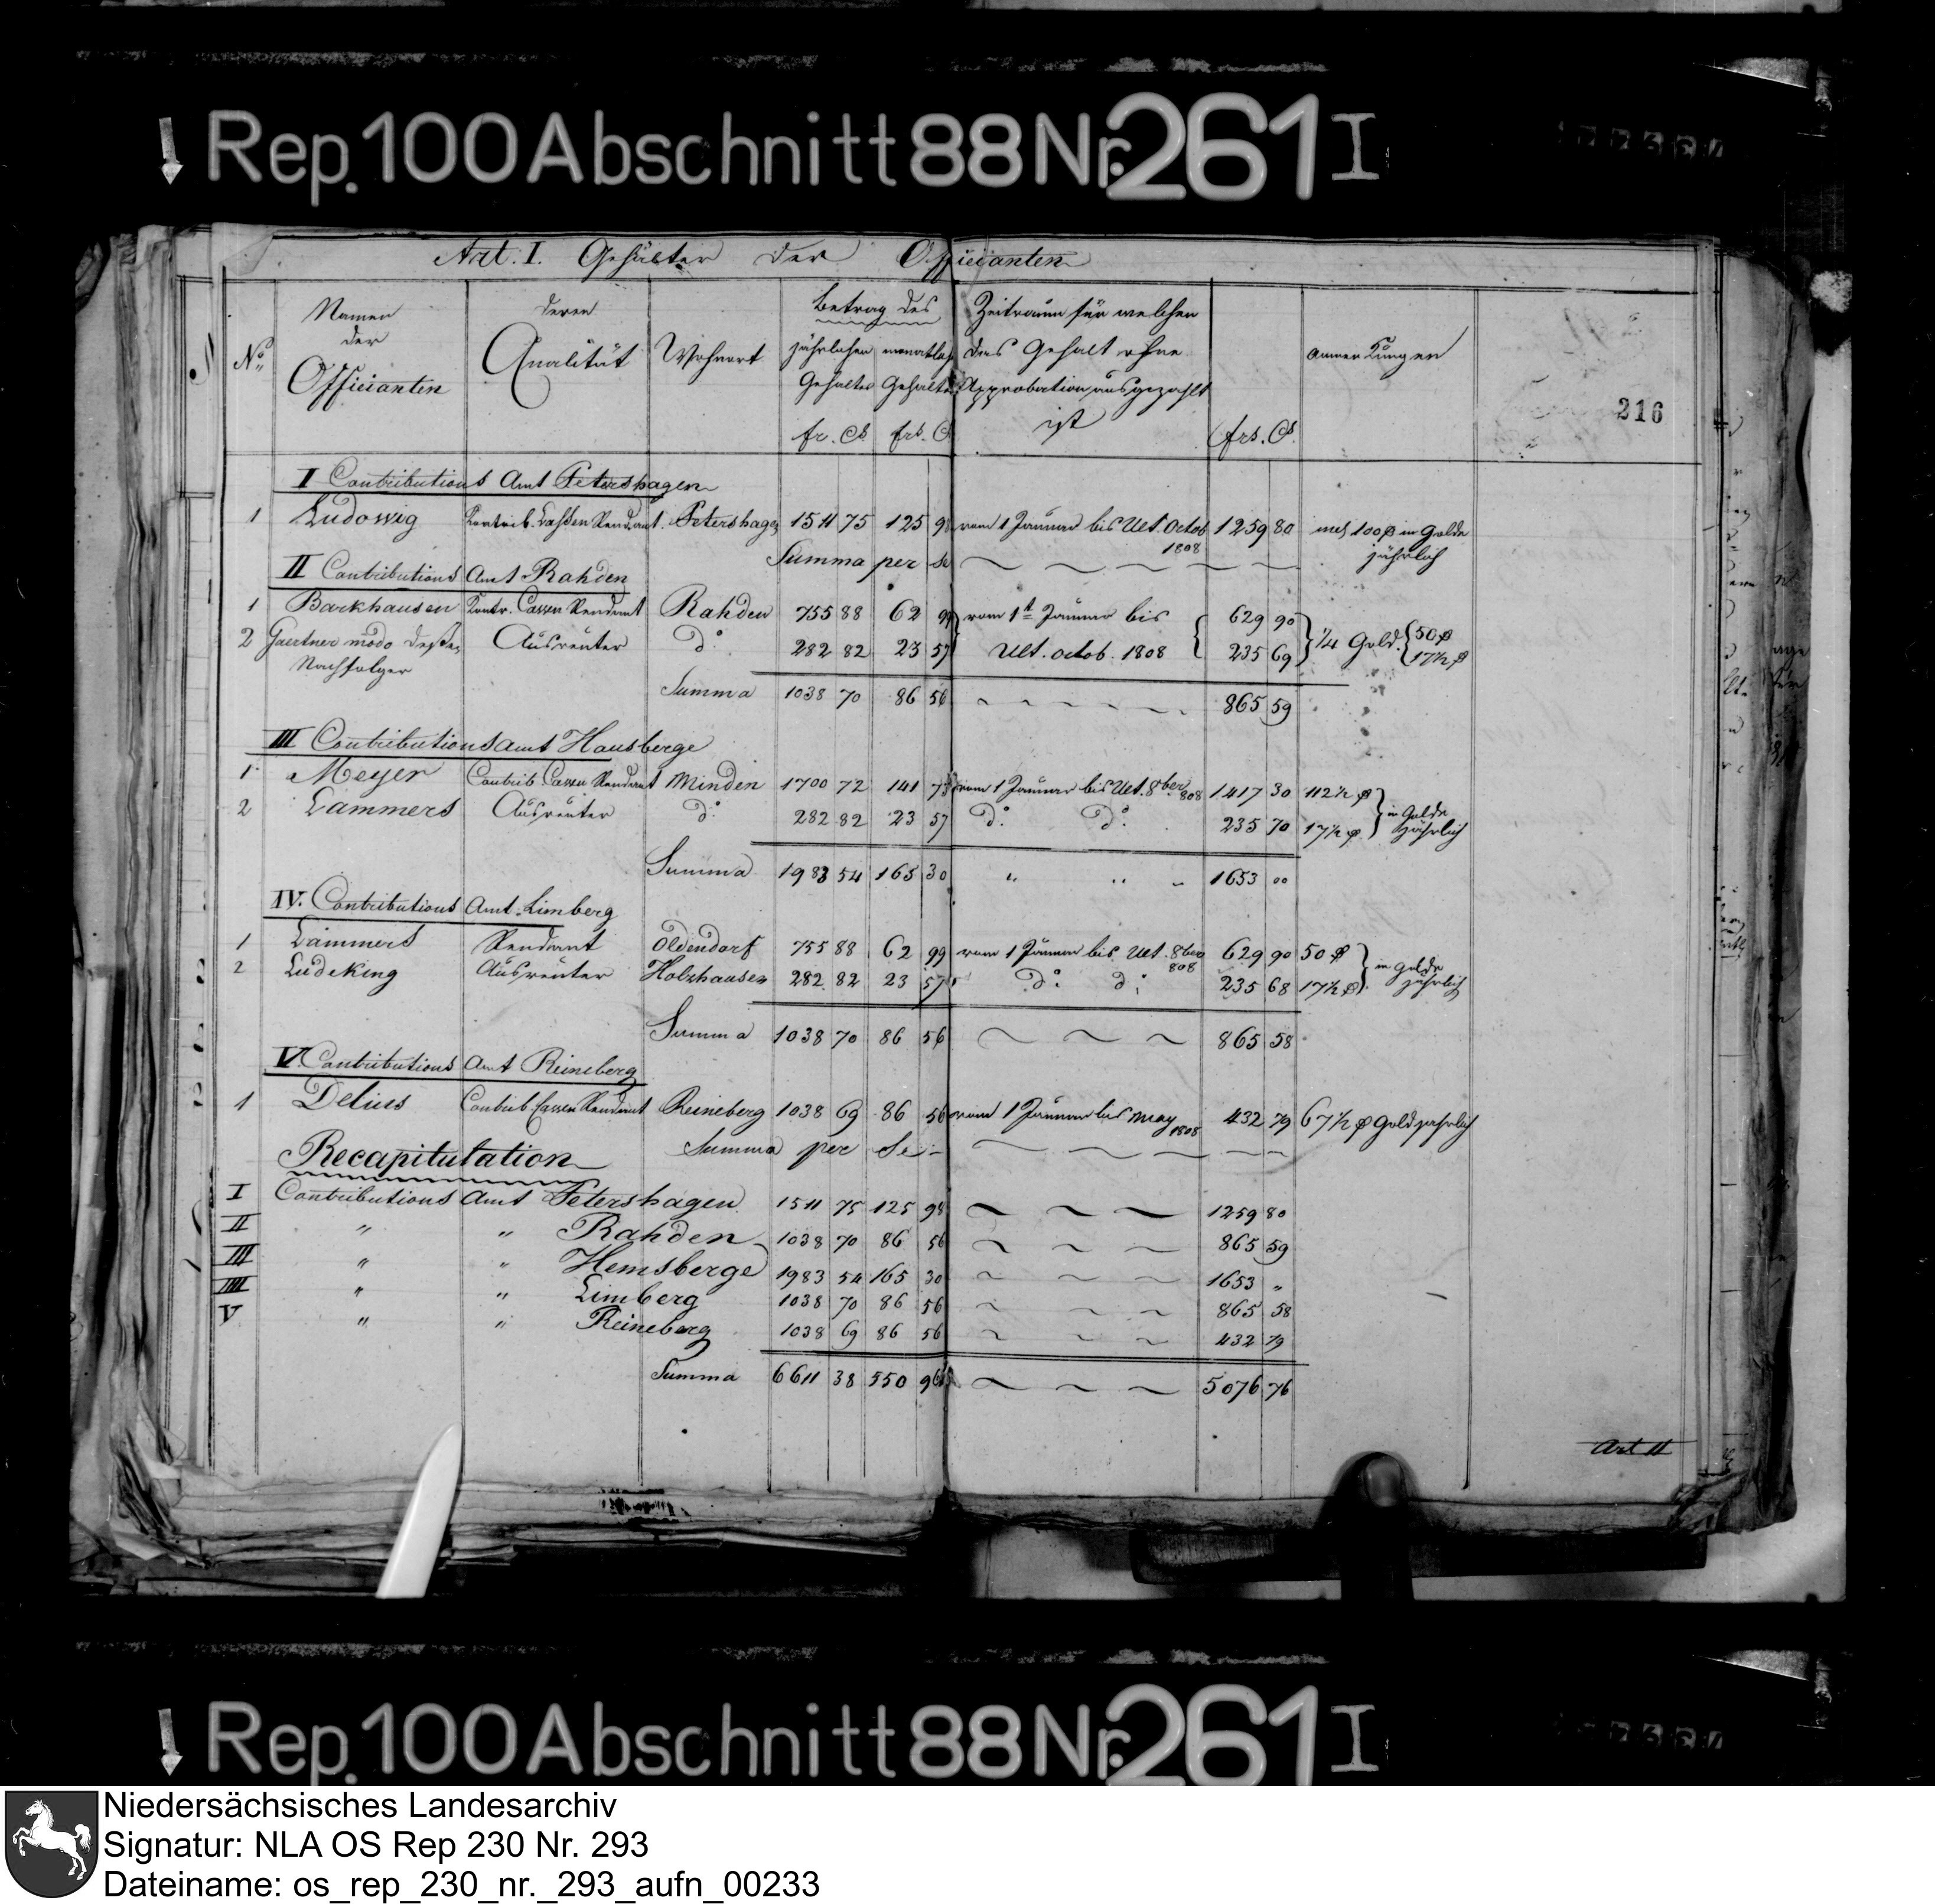 Rep. 100 Abschnitt 88 Nr. 261 I
Art. I. Gehälter der Officianten
No. Namen der Officianten deren Qualität Wohnort Betrag des jährlichen Gehaltes fr. Cs monatlich Gehaltes frs. C Zeitraum für welchen das Gehalt ohne Approbation ausgezahlt ist frs. Cs. Anmerkungen
216
I Contributions Amt Petershagen
1 Ludowig Kontrib. Cassen Rendant Petershagen 1511 75 125 98 vom 1 Januar bis Ult. Octob 1808 1259 80 incl 100 in Golde jährlich
Summa per se
II Contributions Amt Rahden
1 Barkhausen Kontr. Cassen Rendant Rahden 755 88 62 99 vom 1st Januar bis 629 90
2 Gaertner modo dessen Nachfolger Ausreuter do 282 82 23 57 Ult. octob. 1808 235 69 1/4 Gold. 50 17½
Summa 1038 70 86 56 865 59
III Contributions Amt Hausberge
1 Meyer Contrib Cassen Rendant Minden 1700 72 141 73 vom 1 Januar bis Ult. 8ber 808 1417 30 112½
2 Lammers Ausreuter do 282 82 23 57 do. do. 235 70 17½ in Golde jährlich
Summa 1983 54 165 30 " " 1653 00
IV. Contributions Amt Limberg
1 Lammers Rendant Oldendorf 755 88 62 99 vom 1 Januar bis Ult. 8ber 808 629 90 50
2 Ludeking Ausreuter Holzhausen 282 82 23 57 do. do. 235 68 17½ in Golde jährlich
Summa 1038 70 86 56 865 58
V Contributions Amt Reineberg
1 Delius Contrib Cassen Rendant Reineberg 1038 69 86 56 vom 1 Januar bis May 1808 432 79 67½ Gold jährlich
Summa per Se
Recapitulation
I Contributions Amt Petershagen 1511 75 125 98 1259 80
II " " Rahden 1038 70 86 56 865 59
III " " Hemsberge 1983 54 165 30 1653 "
IIII " " Limberg 1038 70 86 56 865 58
V " " Reineberg 1038 69 86 56 432 79
Summa 6611 38 550 96 5076 76
Art II
Rep. 100 Abschnitt 88 Nr. 261 I
Niedersächsisches Landesarchiv
Signatur: NLA OS Rep 230 Nr. 293
Dateiname: os_rep_230_nr._293_aufn_00233